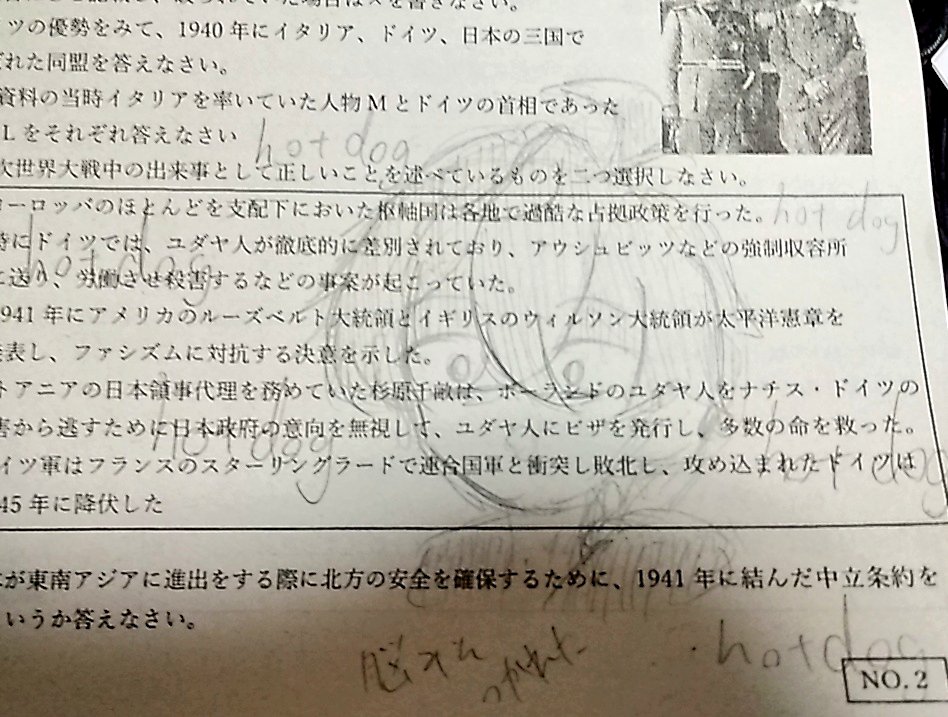 ツの優勢をみて、1940年にイタリア、ドイツ、日本の三国で
れた同盟を答えなさい。
資料の当時イタリアを率いていた人物Mとドイツの首相であった
Lをそれぞれ答えなさい
hotdog
次世界大戦中の出来事として正しいことを述べているものを二つ選択しなさい。
ヨーロッパのほとんどを支配下においた枢軸国は各地で過酷な占拠政策を行った。
hot dog
時にドイツでは、ユダヤ人が徹底的に差別されており、アウシュビッツなどの強制収容所
hotdog
に送り、労働させ殺害するなどの事案が起こっていた。
941年にアメリカのルーズベルト大統領とイギリスのウィルソン大統領が太平洋憲章を
発表し、ファシズムに対抗する決意を示した。
トアニアの日本領事代理を務めていた杉原千畝は、ポーランドのユダヤ人をナチス・ドイツの
害から逃すために日本政府の意向を無視して、ユダヤ人にビザを発行し、多数の命を救った。
hotdog
hotdog
イツ軍はフランスのスターリングラードで連合国軍と衝突し敗北し、攻め込まれたドイツは
45年に降伏した
が東南アジアに進出をする際に北方の安全を確保するために、1941年に結んだ中立条約を
いうか答えなさい。
hotdog
つかれた
NO.2